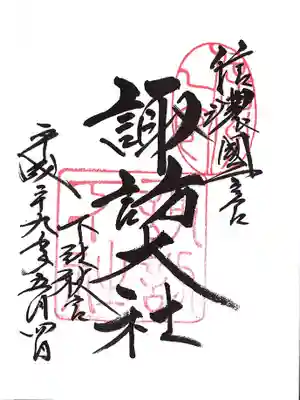 信濃國一之宮
諏訪大社
下社秋宮
平成二十九年五月四日